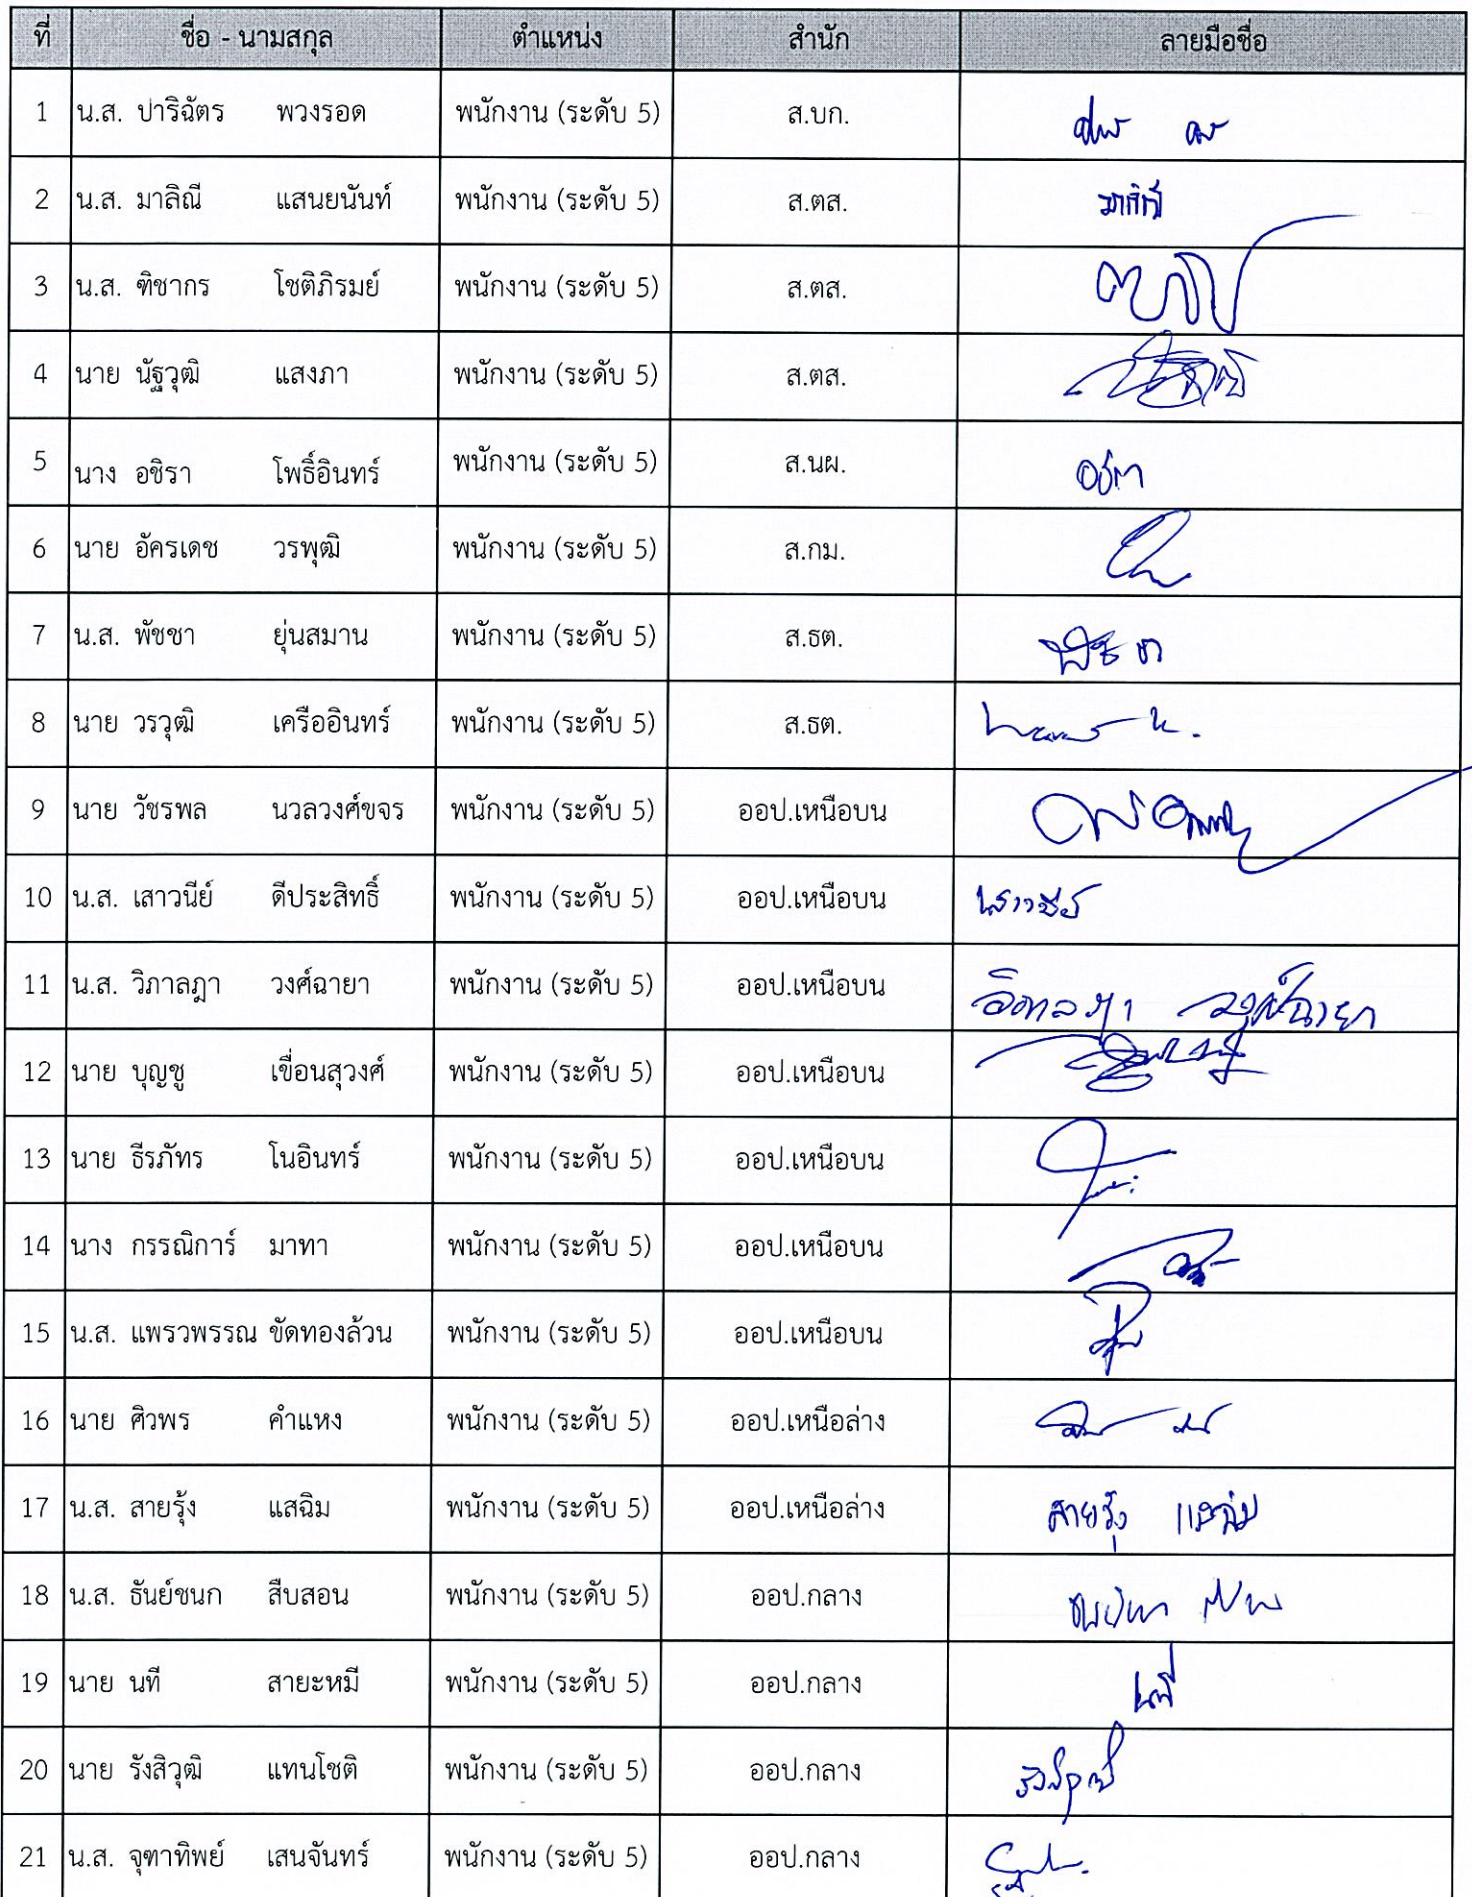 ที่ ชื่อ - นามสกุล ตำแหน่ง สำนัก ลายมือชื่อ
1 น.ส. ปาริฉัตร พวงรอด พนักงาน (ระดับ 5) ส.บก.
2 น.ส. มาลิณี แสนยนันท์ พนักงาน (ระดับ 5) ส.ตส. มาลิณี
3 น.ส. ฑิชากร โชติภิรมย์ พนักงาน (ระดับ 5) ส.ตส.
4 นาย นัฐวุฒิ แสงภา พนักงาน (ระดับ 5) ส.ตส.
5 นาง อชิรา โพธิ์อินทร์ พนักงาน (ระดับ 5) ส.นผ. อชิรา
6 นาย อัครเดช วรพุฒิ พนักงาน (ระดับ 5) ส.กม.
7 น.ส. พัชชา ยุ่นสมาน พนักงาน (ระดับ 5) ส.ธต. พัชชา
8 นาย วรวุฒิ เครืออินทร์ พนักงาน (ระดับ 5) ส.ธต.
9 นาย วัชรพล นวลวงศ์ขจร พนักงาน (ระดับ 5) ออป.เหนือบน
10 น.ส. เสาวนีย์ ดีประสิทธิ์ พนักงาน (ระดับ 5) ออป.เหนือบน เสาวนีย์
11 น.ส. วิภาลฎา วงศ์ฉายา พนักงาน (ระดับ 5) ออป.เหนือบน วิภาลฎา วงศ์ฉายา
12 นาย บุญชู เขื่อนสุวงศ์ พนักงาน (ระดับ 5) ออป.เหนือบน
13 นาย ธีรภัทร โนอินทร์ พนักงาน (ระดับ 5) ออป.เหนือบน
14 นาง กรรณิการ์ มาทา พนักงาน (ระดับ 5) ออป.เหนือบน
15 น.ส. แพรวพรรณ ขัดทองล้วน พนักงาน (ระดับ 5) ออป.เหนือบน
16 นาย ศิวพร คำแหง พนักงาน (ระดับ 5) ออป.เหนือล่าง
17 น.ส. สายรุ้ง แสฉิม พนักงาน (ระดับ 5) ออป.เหนือล่าง สายรุ้ง แสฉิม
18 น.ส. ธันย์ชนก สืบสอน พนักงาน (ระดับ 5) ออป.กลาง
19 นาย นที สายะหมี พนักงาน (ระดับ 5) ออป.กลาง นที
20 นาย รังสิวุฒิ แทนโชติ พนักงาน (ระดับ 5) ออป.กลาง รังสิวุฒิ
21 น.ส. จุฑาทิพย์ เสนจันทร์ พนักงาน (ระดับ 5) ออป.กลาง